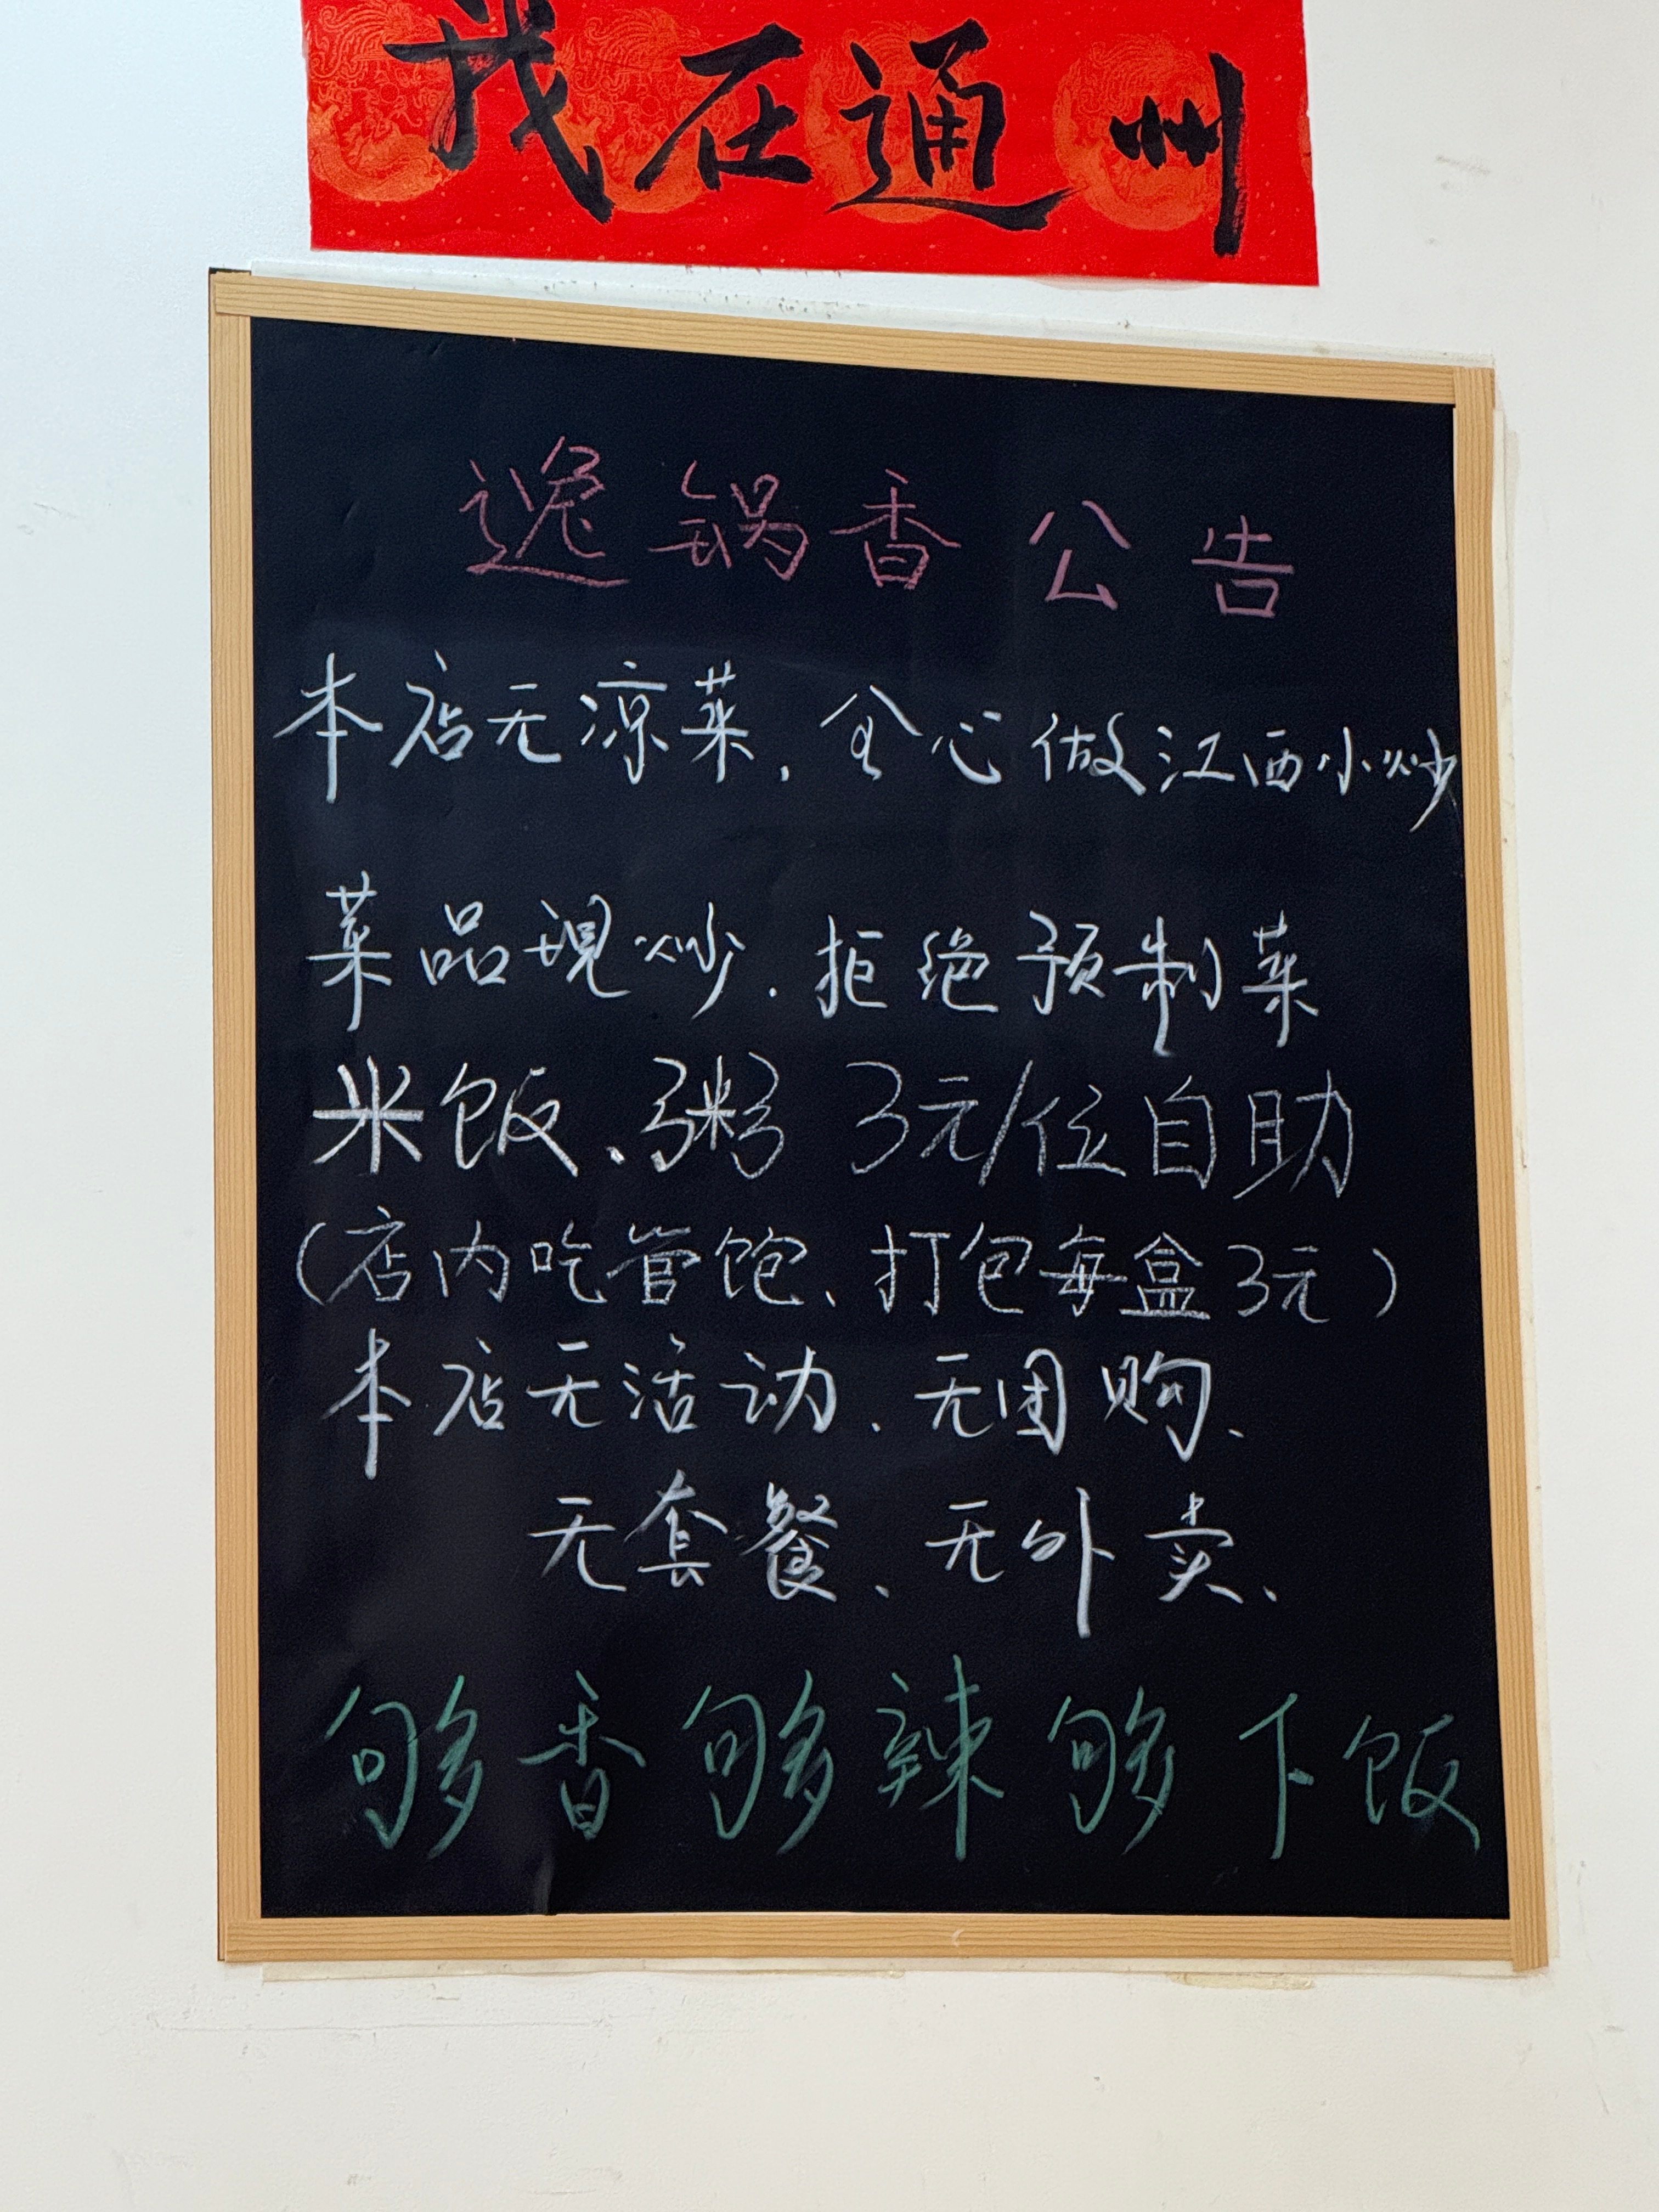 我在通州
逸锅香公告
本店无凉菜,全心做江西小炒
菜品现炒.拒绝预制菜
米饭、粥 3元/位自助
(店内吃管饱、打包每盒3元)
本店无活动、无团购、
无套餐、无外卖、
够香够辣够下饭